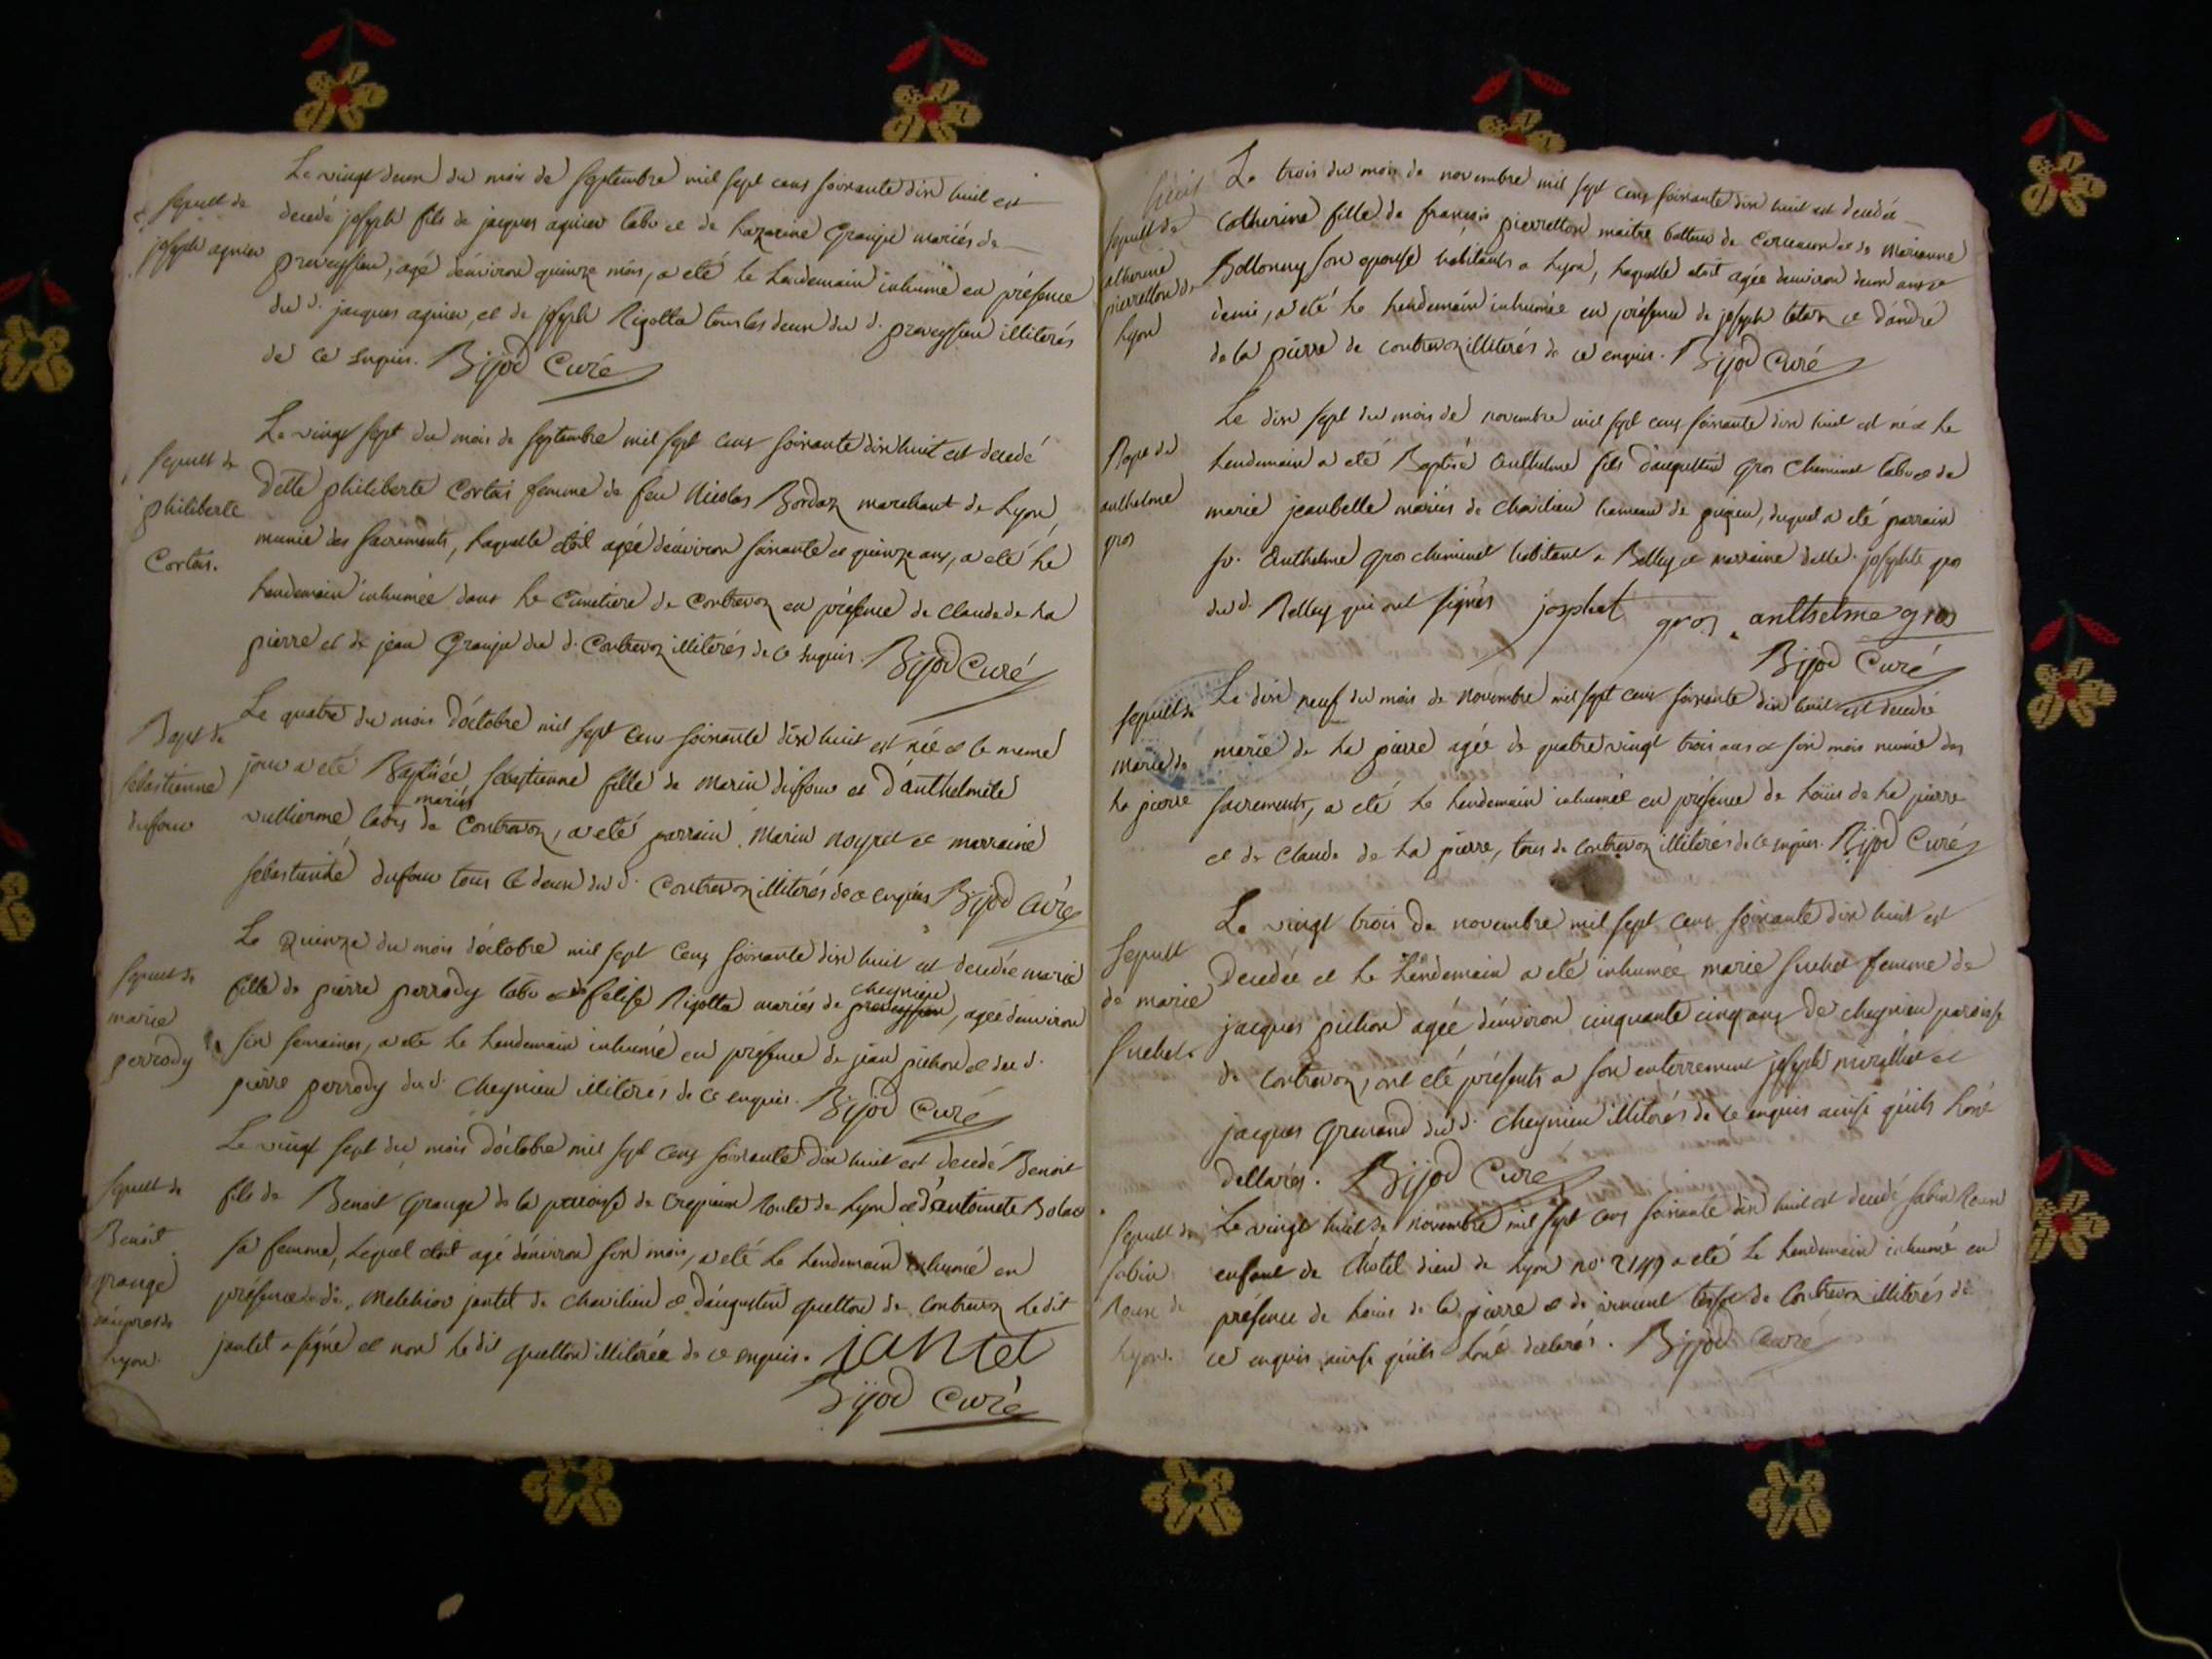 Le vingt deux du mois de septembre mil sept cens soixante dix huit est
sepult de
joseph agnieu
decedé joseph fils de jacques agnieu labr et de Lazarine Grange mariés de
preveyssieu, agé denviron quinze mois, a eté le Lendemain inhumé en présence
du d. jacques agnieu, et de joseph Rigotta tous les deux du d. preveyssieu illiterés
de ce enquis. Bijod Curé
Le vingt sept du mois de septembre mil sept cens soixante dix huit est decedé
sepult de
philiberte
Cortois.
Delle philiberte Cortois femme de feu Nicolas Bordaz marchant de Lyon
munie des sacrements, Laquelle etoit agée denviron soixante et quinze ans, a eté Le
Lendemain inhumée dans Le Cimetiere de Contrevoz en présence de Claude de La
pierre et de jean Grange du d. Contrevoz illiterés de ce enquis. Bijod Curé
Bapt de
sebastienne
dufour
Le quatre du mois d'octobre mil sept cens soixante dix huit est née et le meme
jour a eté Baptisée sebastienne fille de Marin dufour et d'anthelmete
vulliermé labrs mariés de Contrevoz, a eté parrain Marin Noyret et marraine
sebastienne dufour tous le deux du d. Contrevoz illiterés de ce enquis Bijod Curé
Le Quinze du mois d'octobre mil sept cens soixante dix huit est decedée marie
sepult de
marie
perrody
fille de pierre perrody labr et de felise Rigotta mariés de preveyssieu cheynieu, agée denviron
six semaines, a eté Le Lendemain inhumé en présence de jean pichon et du d.
pierre perrody du d. Cheynieu illiterés de ce enquis. Bijod Curé
Le vingt sept du mois d'octobre mil sept cens soixante dix huit est decedé Benoit
sepult de
Benoit
grange
daupres de
Lyon.
fils de Benoit Grange de la paroisse de Crepieux Route de Lyon et d'antoinete
sa femme, Lequel etoit agé denviron six mois, a eté Le Lendemain inhumé en
présence de Melchior jantet de Chavilieu et d'augustin quetton de Contrevoz Ledit
jantet a signé et non Le dit quetton illiterée de ce enquis. jantet
Bijod Curé
Le trois du mois de novembre mil sept cens soixante dix huit est decedée
sepult de
catherine
pierretton de
Lyon
Catherine fille de francois pierretton maitre batteur de et de Marianne
son epouse habitants a Lyon, Laquelle etoit agée denviron deux ans et
demie, a eté Le Lendemain inhumée en présence de joseph et d'andré
de la pierre de contrevoz illiterés de ce enquis. Bijod Curé
Le dix sept du mois de novembre mil sept cens soixante dix huit est né et Le
Bapt de
anthelme
gros
Lendemain a eté Baptisé Anthelme fils d'augustin gros cheminet labr et de
marie jeanbelle mariés de Chavilieu hameau de pugieu, duquel a eté parrain
sr. Anthelme gros cheminet habitant a Belley et marraine delle. josephte gros
du d. Belley qui ont signés josphet gros anthelme gros
Bijod Curé
Le dix neuf du mois de novembre mil sept cens soixante dix huit est decedée
sepult de
Marie de
La pierre
marie de La pierre agée de quatre vingt trois ans et six mois munie des
sacrements, a eté Le Lendemain inhumée en présence de Loüis de La pierre
et de Claude de La pierre, tous de Contrevoz illiterés de ce enquis. Bijod Curé
Le vingt trois de novembre mil sept cens soixante dix huit est
Sepult
de marie
suchet.
Decedée et Le Lendemain a eté inhumée marie suchet femme de
jacques pichon agée denviron cinquante cinq ans de cheynieu paroisse
de Contrevoz, ont eté présents a son enterrement joseph et
jacques du d. Cheynieu illiterés de ce enquis ainsi quils Lont
dellarés. Bijod Curé
Sepult de
sabin
Roux de
Lyon.
Le vingt huit de novembre mil sept cens soixante dix huit est decedé sabin Roux
enfant de Lhotel dieu de Lyon no. a eté Le Lendemain inhumé en
présence de Loüis de La pierre et de vincent de Contrevoz illiterés de
ce enquis ainsi quils Lont declarés. Bijod Curé